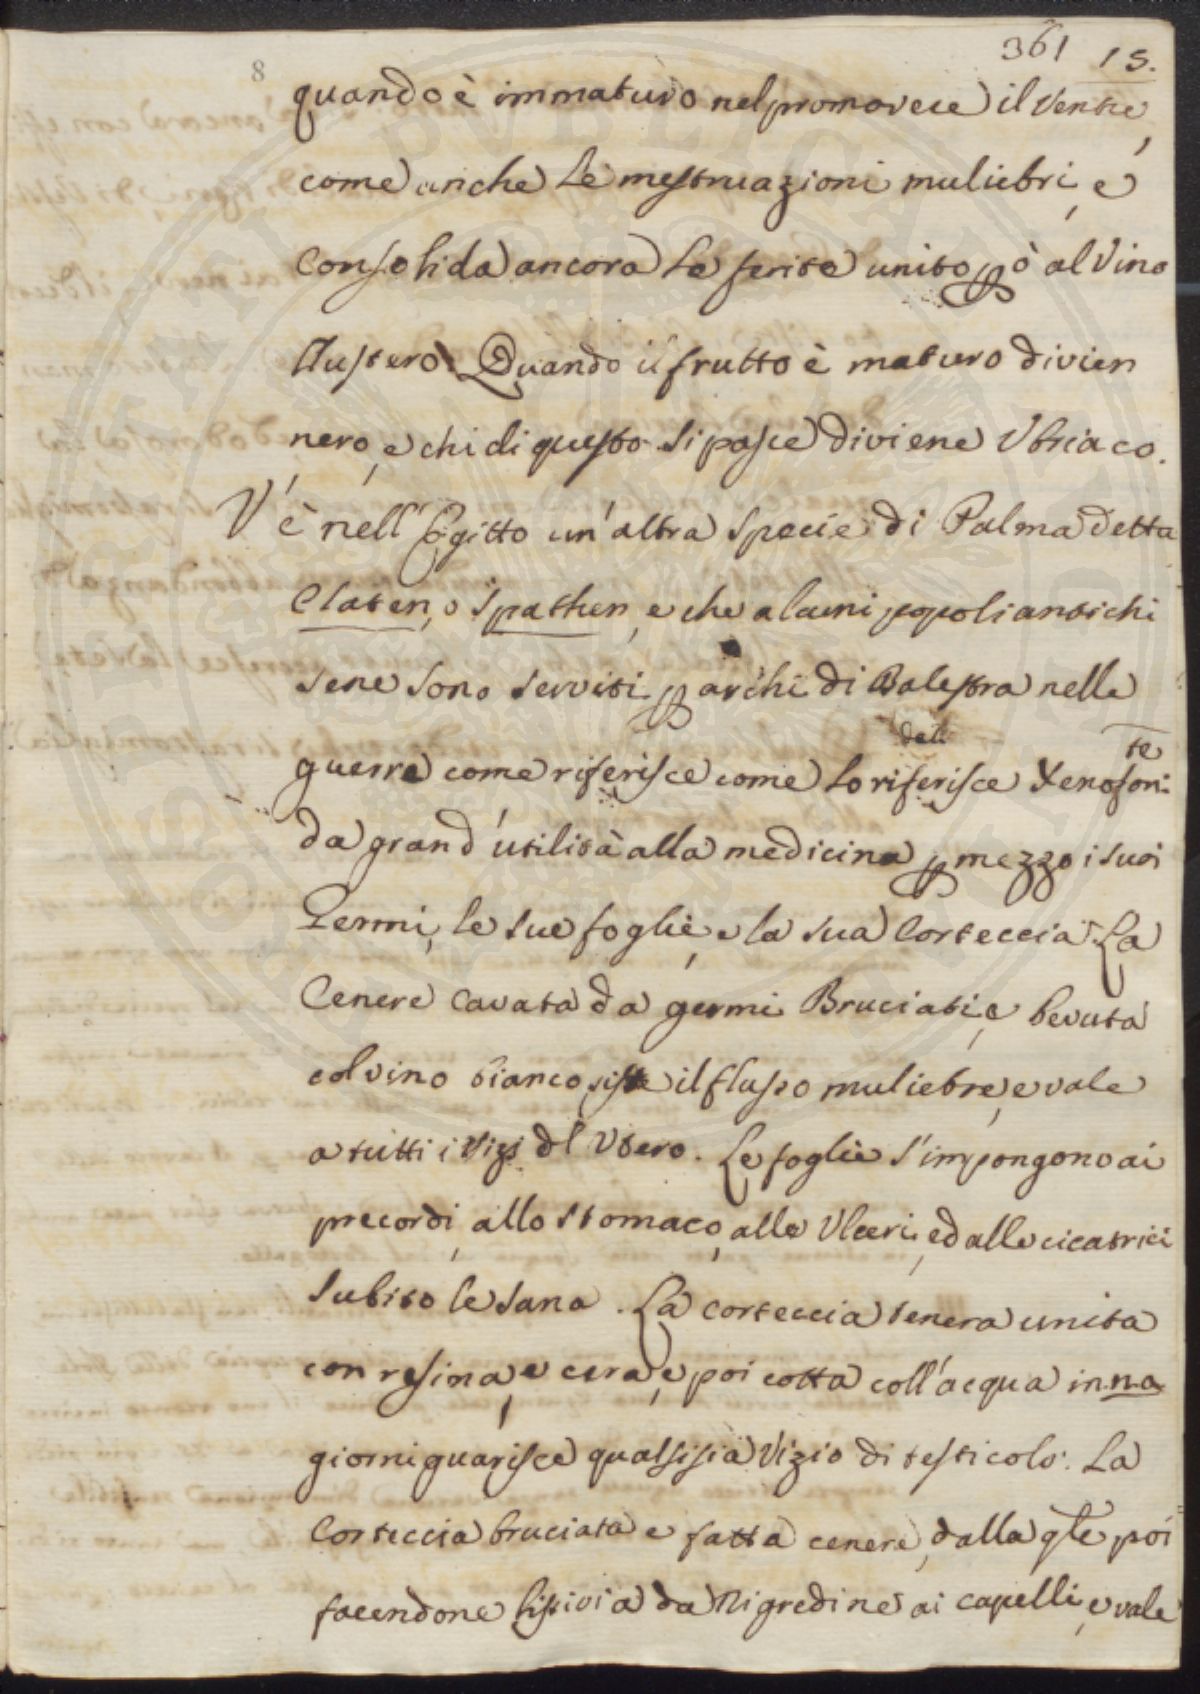 361 15.
8
quando è immaturo nel promovere il Ventre,
come anche le mestruazioni muliebri, e
Consolida ancora le ferite unito pò al Vino
Austero. Quando il frutto è maturo divien
nero, e chi di questo si pasce diviene Vbriaco.
V'è nell'Egitto un'altra specie di Palma detta
Claten, o Spathen, e che alcuni popoli antichi
sene sono serviti p archi di Balestra nelle
guerre come riferisce come lo riferisce Xenofon:te
da grand'utilità alla medicina p mezzo i suoi
Germi, le sue foglie, e la sua Corteccia. La
Cenere Cavata da germi Bruciati, e bevuta
col vino bianco, siste il flusso muliebre, e vale
a tutti i Vizj dl Vtero. Le foglie s'impongono ai
precordi, allo stomaco, alle Vlceri, ed alle cicatrici
subito le sana. La corteccia tenera unita
con resina, e cera, e poi cotta coll'acqua in
giorni guarisce qualsisia Vizio di testicolo. La
Corteccia bruciata e fatta cenere, dalla qle poi
facendone lisivia da Nigredine ai capelli, e vale